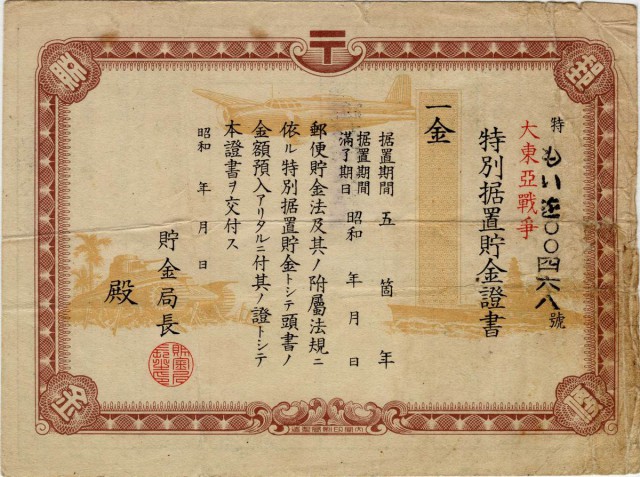 〒
特 もい〇〇四六八號
大東亞戰爭
特別据置貯金證書
一金
据置期間 五箇年
据置期間滿了期日 昭和 年 月 日
郵便貯金法及其ノ附屬法規ニ
依ル特別据置貯金トシテ頭書ノ
金額預入アリタルニ付其ノ證トシテ
本證書ヲ交付ス
昭和 年 月 日
貯金局長
殿
内閣印刷局製造